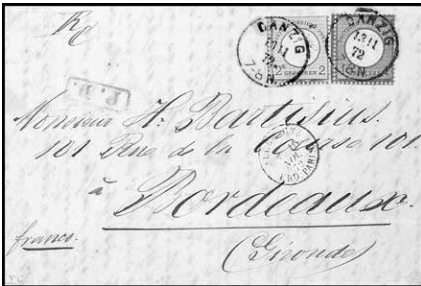 DANZIG
13 11
72
7-8 N.
DANZIG
13 11
72
7-8 N.
2 GROSCHEN 2
P.D.
Monsieur H. Bartisius.
101 Rue de la Course 101
à
Bordeaux.
franco.
(Gironde)